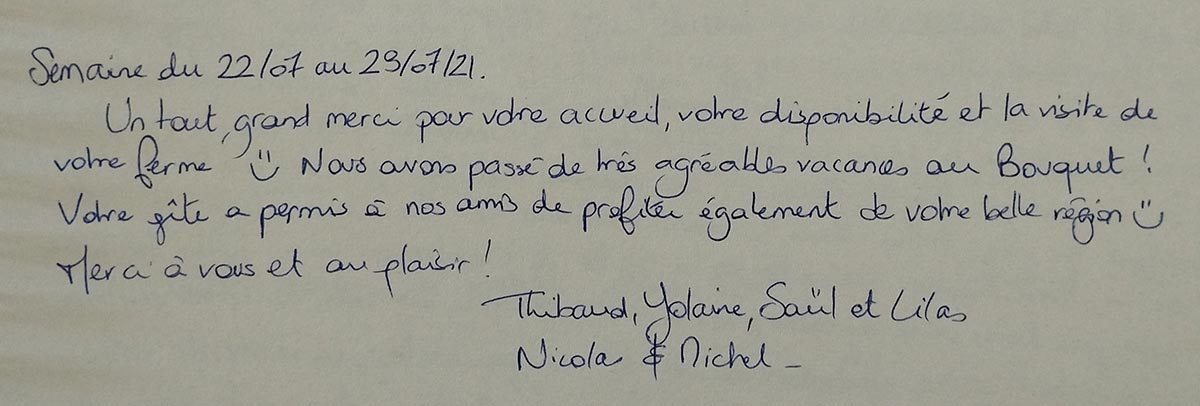 Semaine du 22/07 au 29/07/21.
Un tout grand merci pour votre accueil, votre disponibilité et la visite de
votre ferme :) Nous avons passé de très agréables vacances au Bouquet !
Votre gîte a permis à nos amis de profiter également de votre belle région :)
Merci à vous et au plaisir !
Thibaud, Yolaine, Saül et Lilas
Nicolas & Michel -